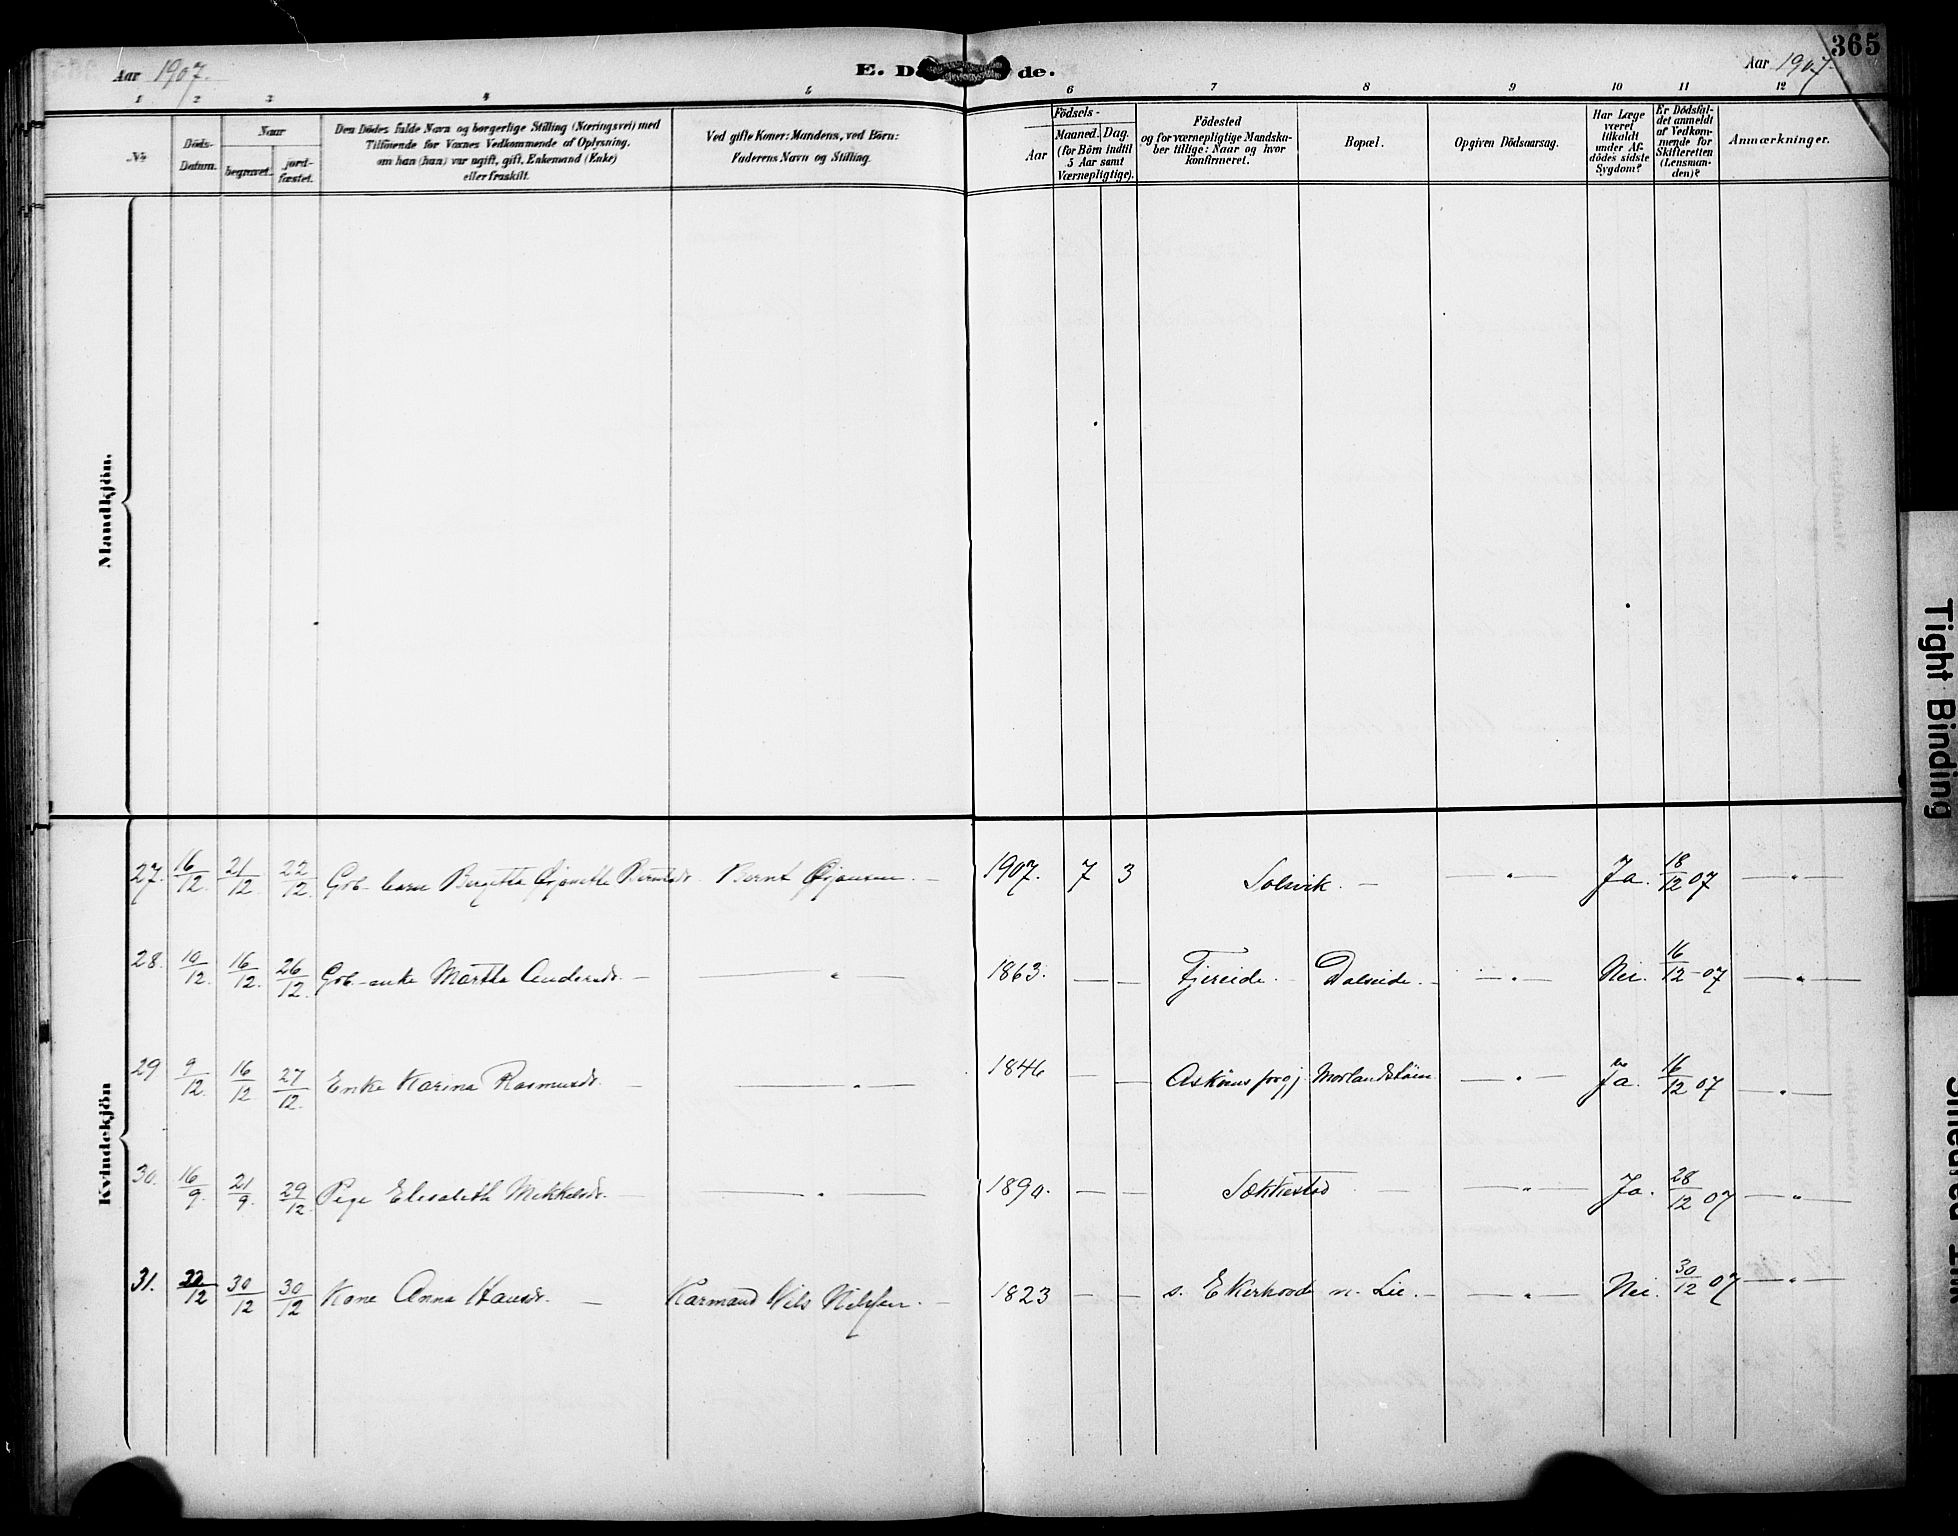 365
Aar 1907.
E. D de.
Aar 1907.
1 2 3 4 5 6 7 8 9 10 11 12
No
Döds-
Datum.
Naar
begravet.
jord-
fæstet.
Den Dödes fulde Navn og borgerlige Stilling (Næringsvei) med
Tilföiende for Voxnes Vedkommende af Oplysning,
om han (hun) var ugift, gift, Enkemand (Enke)
eller fraskilt.
Ved gifte Koner: Mandens, ved Börn:
Faderens Navn og Stilling.
Födsels-
Aar
Maaned. Dag.
(for Börn indtil
5 Aar samt
Værnepligtige).
Födested
og for værnepligtige Mandska-
ber tillige: Naar og hvor
konfirmeret.
Bopæl.
Opgiven Dödsaarsag.
Har Læge
været
tilkaldt
under Af-
dödes sidste
Sygdom?
Er Dödsfal-
det anmeldt
af Vedkom-
mende for
Skifteretten
(Lensman-
den)?
Anmærkninger.
Mandkjön.
Kvindekjön
27. 16/12. 21/12 22/12. Gbr. barn Bergitta Bernts 1907. 7 3 Solsvik. — — " — Ja. 18/12 07 — " —
28. 10/12. 16/12. 26/12. Gbr.-enke Martha Andersd. — — " — 1863. — — Fjereide. Dalseide. — — " — Nei. 16/12-07 — " —
29 9/12. 16/12. 27/12. Enke Karina Rasmusd. — — " — 1846 — — Asköens prgj. — " — Ja. 16/12 07 — " —
30. 16/9. 21/9. 29/12. Pige Elisabeth Mikkelsd. — — " — 1890. — — Sækkestad — — " — Ja. 28/12 07 — " —
31. 22/12 30/12 30/12 Kone Anna Hansd. — Kaarmand Nils Nilssen. — 1823 — — s. Ekerhovde n. Lie. — — " — Nei. 30/12 07 — " —
Tight Binding